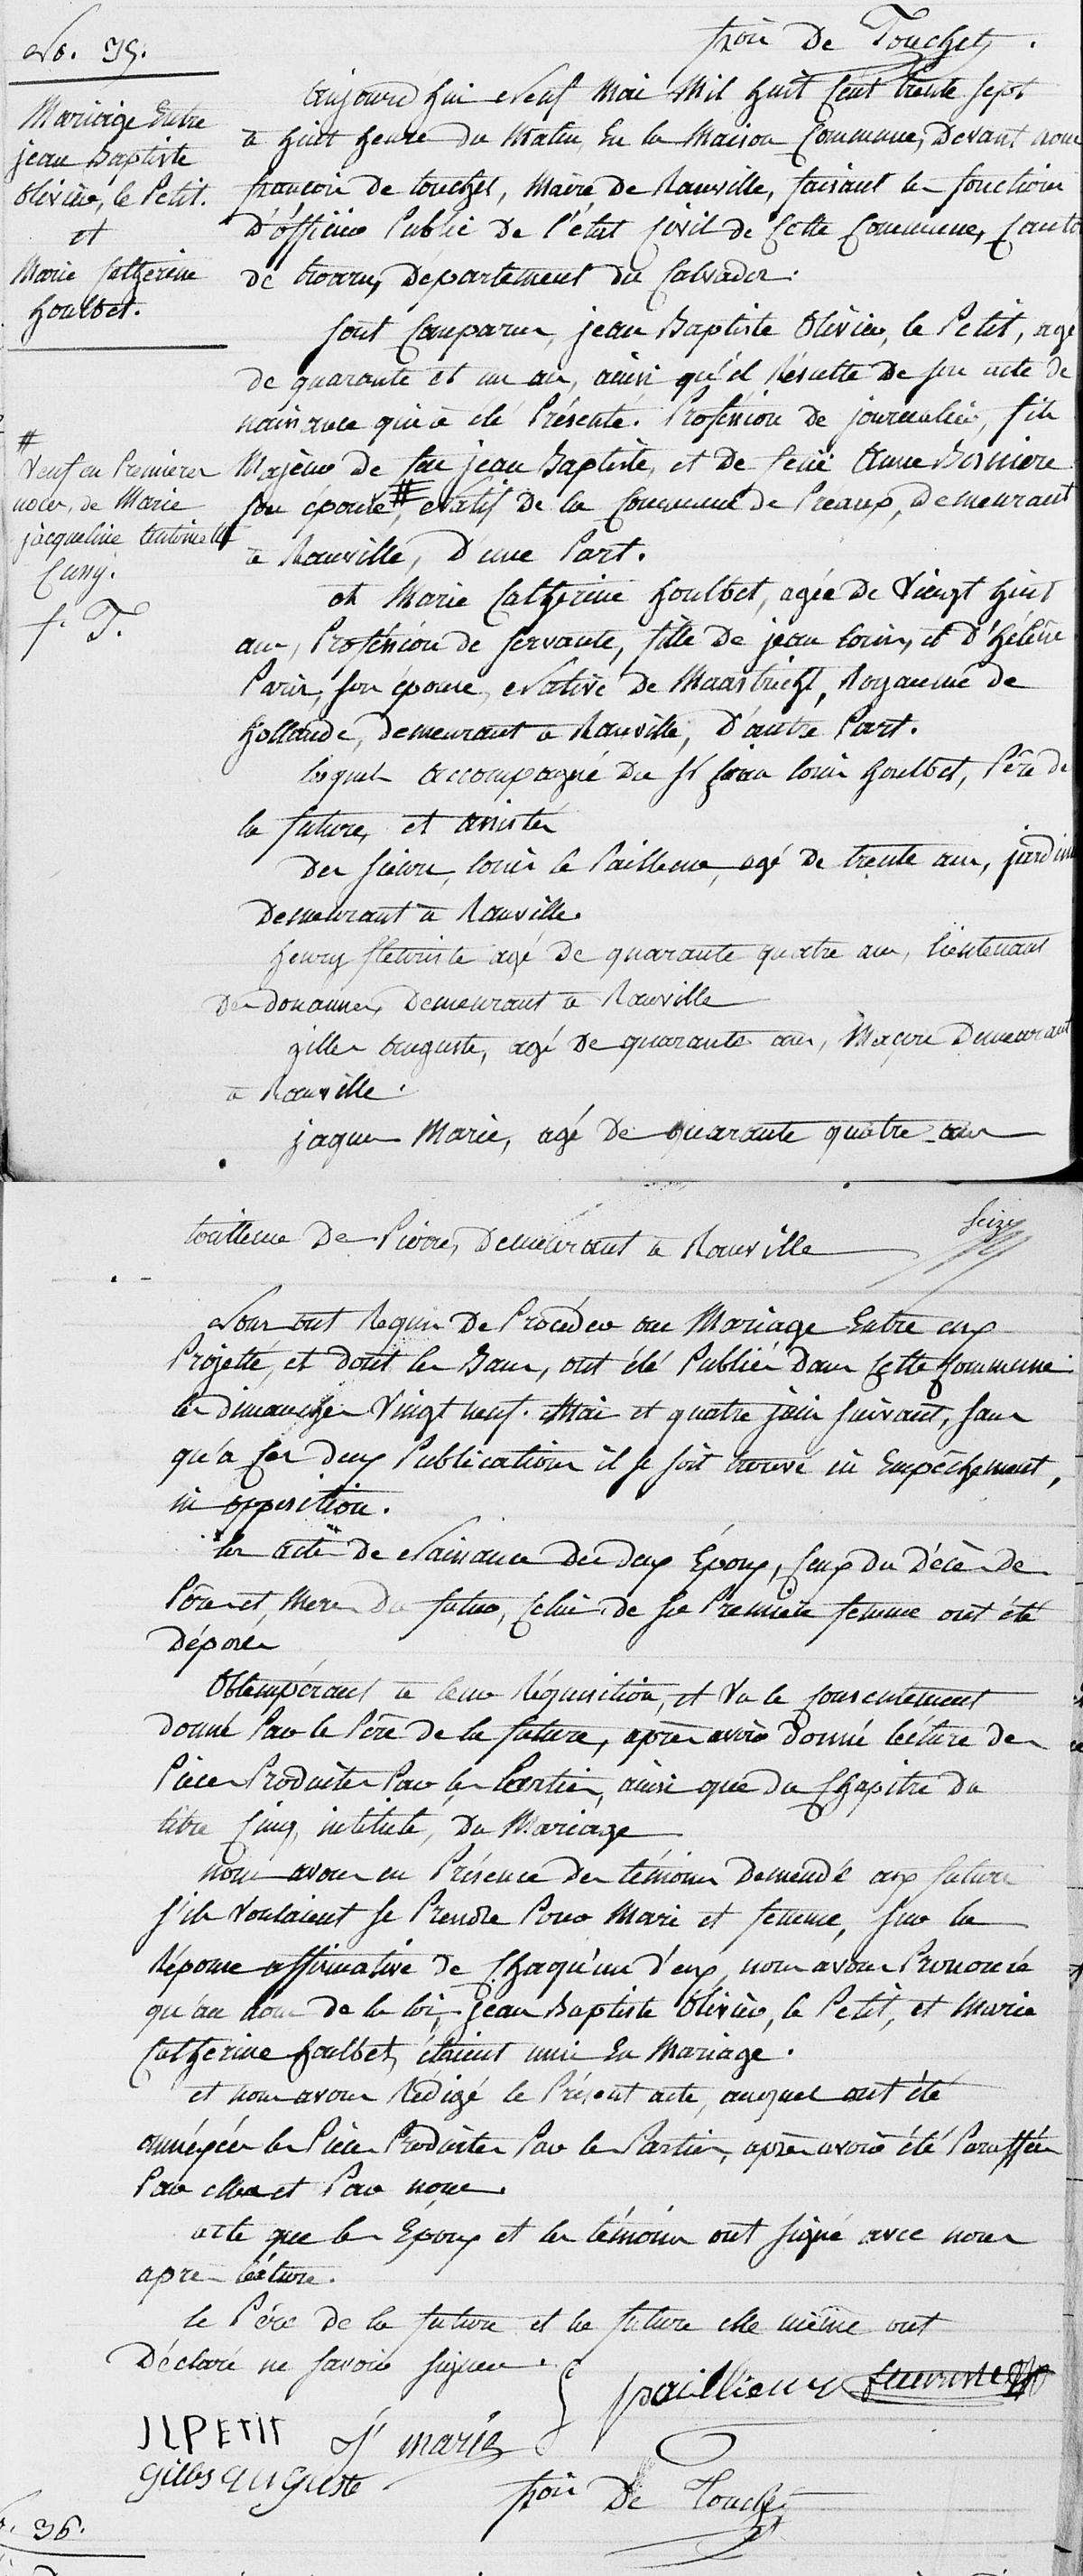 No. 35.
fçois De Touchet.
Mariage Entre
jean Baptiste
Olivier, le Petit.
et
Marie Catherine
houlbet.
#
Veuf en Premieres
noces, de Marie
jacqueline Antoinette
Cussy.
f. T.
Aujourd'hui Neuf Mai Mil huit Cent trente Sept
à huit heure du Matin, En la Maison Commune, Devant nous
françois de touchet, Maire de Ranville, faisant les fonctions
D'officier Public de l'état Civil de Cette Commune, Canton
de troarn, Département du Calvados.
Sont Comparus, jean Baptiste Olivier, le Petit, agé
de quarante et un ans, ainsi qu'il Résulte de son acte de
naissance qui a été Présenté. Profession de journalier, fils
Majeur de feu jean Baptiste, et de feue Anne Besniere
son épouse #, Natif de la Commune de Preaux, demeurant
à Ranville, D'une Part.
et Marie Catherine houlbet, agée de Vingt huit
ans, Profession de servante, fille de jean louis, et d'hélène
Paris, son épouse, Native de Maastricht, Royaume de
hollande, demeurant à Ranville, D'autre Part.
lesquels accompagné du Sr jean louis houlbet, Père de
la future, et assistés
Des sieurs, louis le Paillieur, agé de trente ans, jardinier
Demeurant à Ranville.
henry fleuriste agé de quarante quatre ans, lieutenant
Des douannes, Demeurant à Ranville
gilles auguste, agé de quarante ans, Maçon Demeurant
à Ranville.
jaques Marie, agé de quarante quatre ans
tailleur De Pierre, demeurant à Ranville
Seize
Nous ont Requis De Procéder au Mariage Entre eux
Projetté, et dont les Bans, ont été Publiés Dans Cette Commune
les dimanches Vingt neuf Mai et quatre juin suivant, sans
qu'à Ces deux Publications il se soit trouvé ni Empêchement,
ni opposition.
les actes de Naissance des deux Époux, Ceux du Décès de
Père et Mere Du futur, Celui de sa Premiere femme ont été
Déposés
Obtempérant à leur Réquisition, et Vu le Consentement
donné Par le Père de la future, après avoir donné lécture des
Pièces Produites Par les Parties, ainsi que du Chapitre du
titre Cinq, intitulé, Du Mariage
nous avons en Présence des témoins Demendé aux futurs
s'ils Voulaient se Prendre Pour Mari et femme, Sur la
Réponse affirmative de Chaqu'un d'eux, nous avons Prononcé
qu'au nom de la loi, Jean Baptiste Olivier, le Petit, et Marie
Catherine houlbet, étaient unis En Mariage.
et nous avons Rédigé le Présent acte, auquel ont été
annéxées les Pièces Produites Par les Parties, après avoir été Paraffées
Par elles et Par nous.
acte que les Époux et les témoins ont signé avec nous
après lécture.
le Père de la future et la future elle même ont
Déclaré ne savoir signer.
paillieur fleuriste
JLPETIT J marie
Gilles auguste
fçois De Touchet
36.